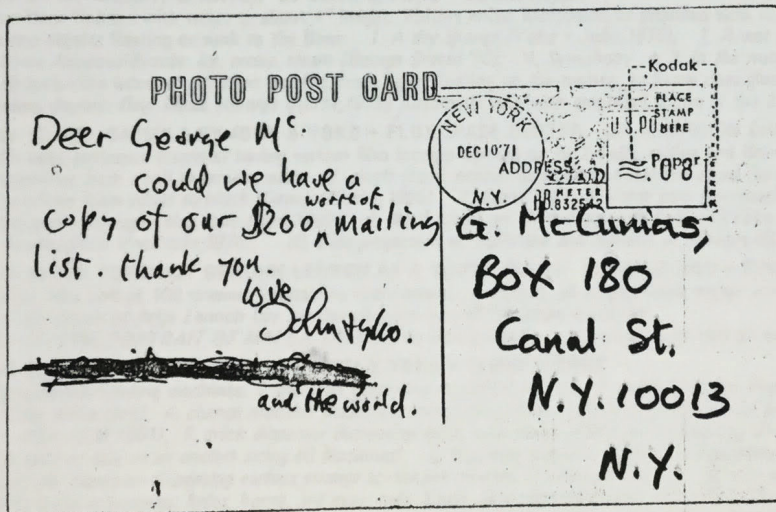 PHOTO POST CARD
Deer George Mc.
could we have a
copy of our $200 worth of mailing
list. thank you.
love
John + yko.
and the world.
NEW YORK
DEC 10'71
N.Y.
Kodak
PLACE
STAMP
HERE
Paper
U.S. PO
.08
ADDRESS
METER
832542
G. McCumas,
BOX 180
Canal St.
N.Y. 10013
N.Y.